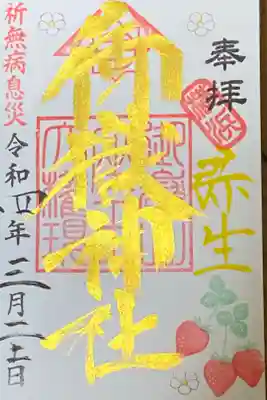 奉拝
弥生
御嶽神社
大権現
祈無病息災
令和四年三月二十一日